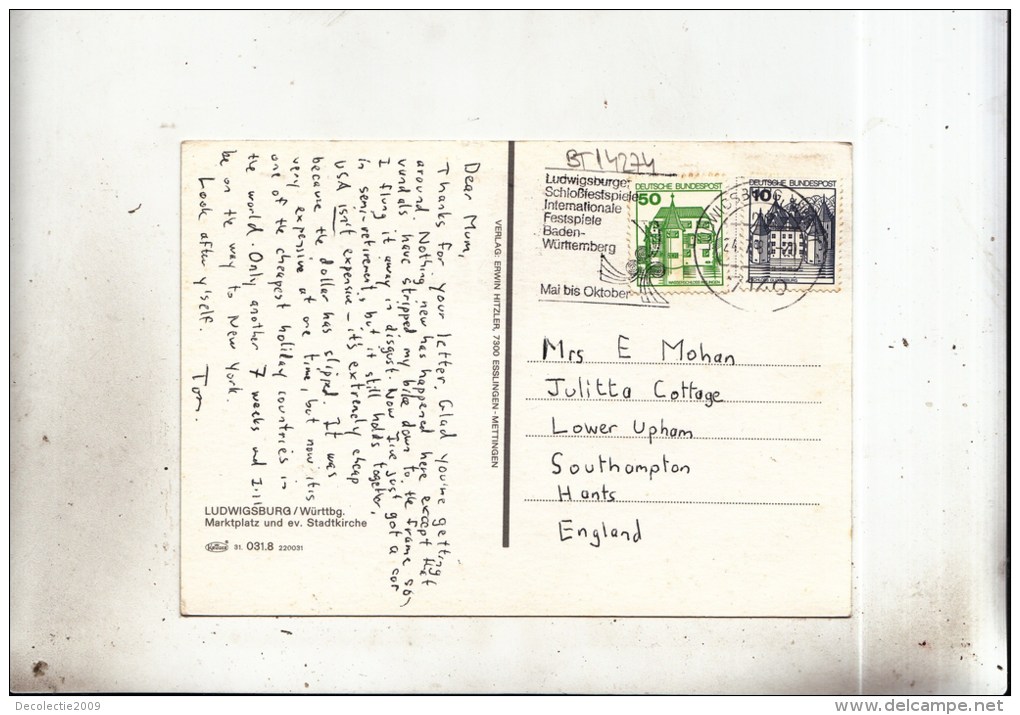 BT14274
Ludwigsburger
Schloßfestspiele
Internationale
Festspiele
Baden-
Württemberg
Mai bis Oktober
DEUTSCHE BUNDESPOST
50
DEUTSCHE BUNDESPOST
10
Dear Mum,
Thanks for your letter. Glad you're getting
around. Nothing new has happened here except that
vandals have stripped my bike down to the frame so
I flung it away in disgust. Now I've just got a car
in semi-retirement, but it still holds together.
USA isn't expensive – it's extremely cheap
because the dollar has slipped. It was
very expensive at one time, but now it is
one of the cheapest holiday countries in
the world. Only another 7 weeks and I'll
be on the way to New York.
Look after y'self. Tom.
VERLAG: ERWIN HITZLER, 7300 ESSLINGEN-METTINGEN
Mrs E Mohan
Julitta Cottage
Lower Upham
Southampton
Hants
England
LUDWIGSBURG/Württbg.
Marktplatz und ev. Stadtkirche
31. 031.8 220031
Decolectie2009
www.delcampe.net